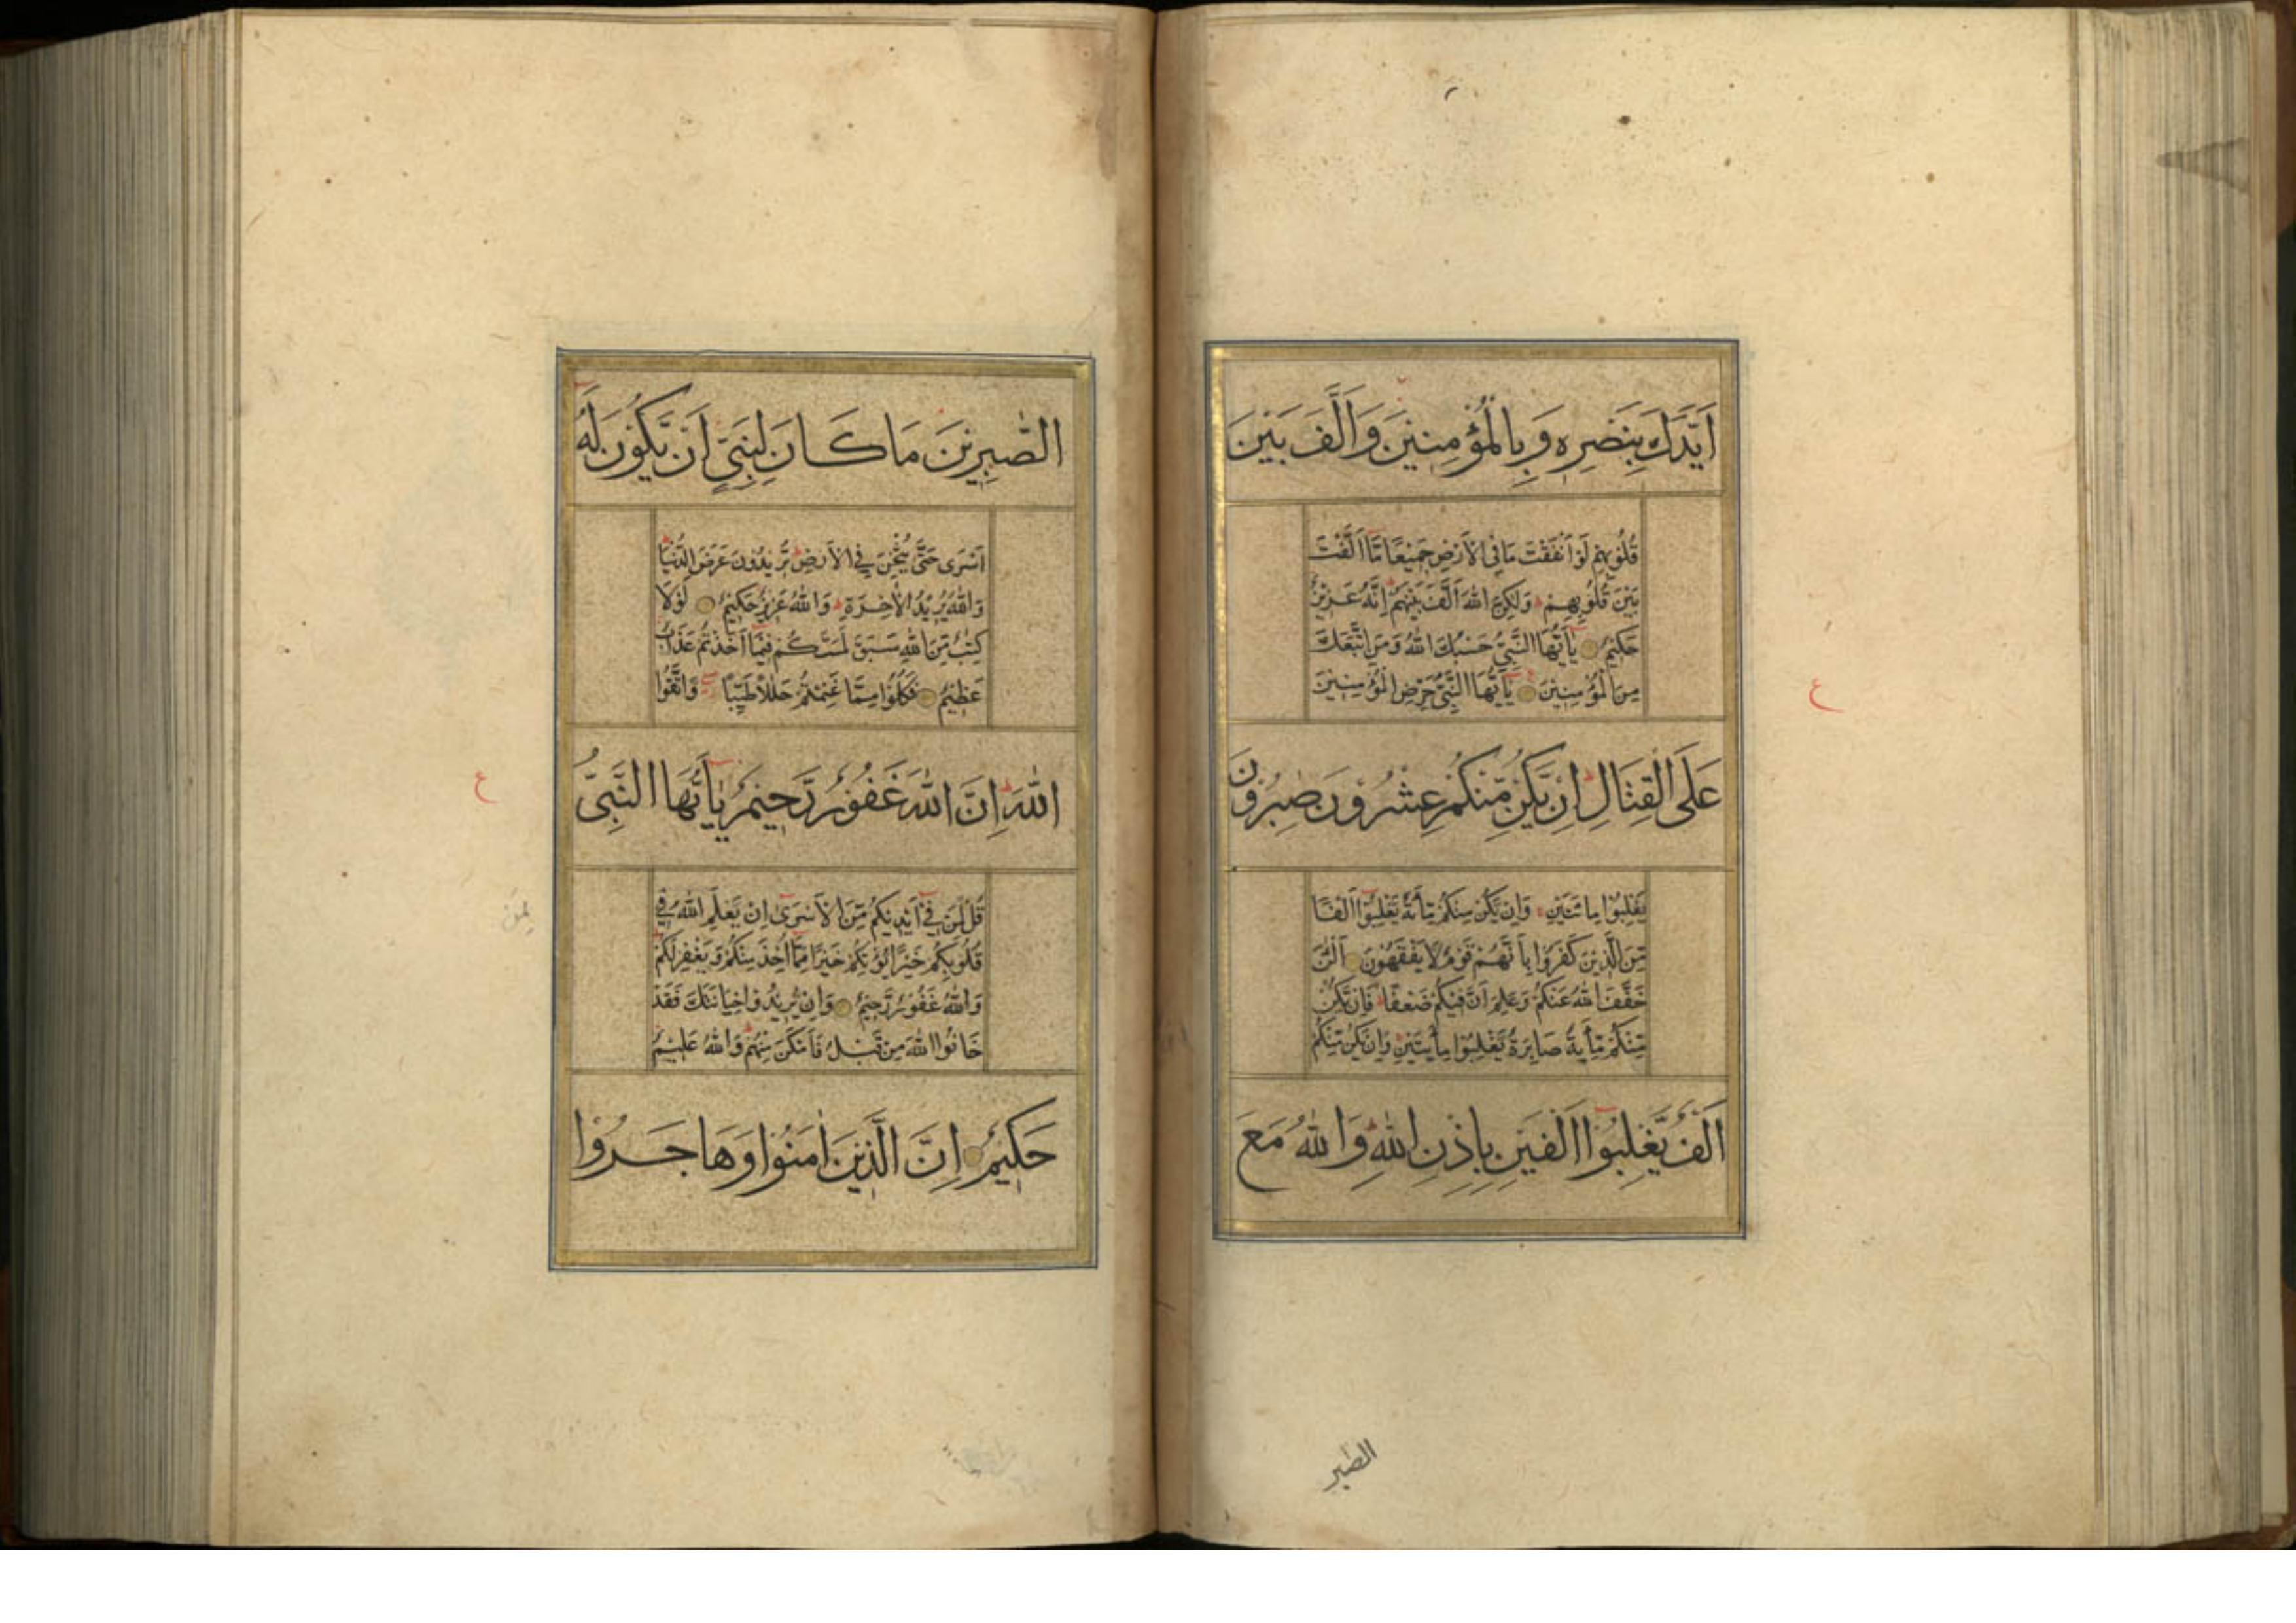 اَيَّدَكَ بِنَصْرِهٖ وَبِالْمُؤْمِنِيْنَ وَاَلَّفَ بَيْنَ
قُلُوْبِهِمْ لَوْ اَنْفَقْتَ مَا فِى الْاَرْضِ جَمِيْعًا مَّا اَلَّفْتَ
بَيْنَ قُلُوْبِهِمْ وَلٰكِنَّ اللّٰهَ اَلَّفَ بَيْنَهُمْ اِنَّهٗ عَزِيْزٌ
حَكِيْمٌ يٰاَيُّهَا النَّبِىُّ حَسْبُكَ اللّٰهُ وَمَنِ اتَّبَعَكَ
مِنَ الْمُؤْمِنِيْنَ يٰاَيُّهَا النَّبِىُّ حَرِّضِ الْمُؤْمِنِيْنَ
عَلَى الْقِتَالِ اِنْ يَّكُنْ مِّنْكُمْ عِشْرُوْنَ صٰبِرُوْنَ
يَغْلِبُوْا مِائَتَيْنِ وَاِنْ يَّكُنْ مِنْكُمْ مِّائَةٌ يَّغْلِبُوْا اَلْفًا
مِّنَ الَّذِيْنَ كَفَرُوْا بِاَنَّهُمْ قَوْمٌ لَّا يَفْقَهُوْنَ اَلْئٰنَ
خَفَّفَ اللّٰهُ عَنْكُمْ وَعَلِمَ اَنَّ فِيْكُمْ ضَعْفًا فَاِنْ يَّكُنْ
مِّنْكُمْ مِّائَةٌ صَابِرَةٌ يَّغْلِبُوْا مِائَتَيْنِ وَاِنْ يَّكُنْ مِّنْكُمْ
اَلْفٌ يَّغْلِبُوْا اَلْفَيْنِ بِاِذْنِ اللّٰهِ وَاللّٰهُ مَعَ
الصّٰبر
ع
الصّٰبِرِيْنَ مَا كَانَ لِنَبِىٍّ اَنْ يَّكُوْنَ لَهٗ
اَسْرٰى حَتّٰى يُثْخِنَ فِى الْاَرْضِ تُرِيْدُوْنَ عَرَضَ الدُّنْيَا
وَاللّٰهُ يُرِيْدُ الْاٰخِرَةَ وَاللّٰهُ عَزِيْزٌ حَكِيْمٌ لَوْلَا
كِتٰبٌ مِّنَ اللّٰهِ سَبَقَ لَمَسَّكُمْ فِيْمَا اَخَذْتُمْ عَذَابٌ
عَظِيْمٌ فَكُلُوْا مِمَّا غَنِمْتُمْ حَلٰلًا طَيِّبًا وَّاتَّقُوا
اللّٰهَ اِنَّ اللّٰهَ غَفُوْرٌ رَّحِيْمٌ يٰاَيُّهَا النَّبِىُّ
قُلْ لِّمَنْ فِىْ اَيْدِيْكُمْ مِّنَ الْاَسْرٰى اِنْ يَّعْلَمِ اللّٰهُ فِىْ
قُلُوْبِكُمْ خَيْرًا يُّؤْتِكُمْ خَيْرًا مِّمَّا اُخِذَ مِنْكُمْ وَيَغْفِرْ لَكُمْ
وَاللّٰهُ غَفُوْرٌ رَّحِيْمٌ وَاِنْ يُّرِيْدُوْا خِيَانَتَكَ فَقَدْ
خَانُوا اللّٰهَ مِنْ قَبْلُ فَاَمْكَنَ مِنْهُمْ وَاللّٰهُ عَلِيْمٌ
حَكِيْمٌ اِنَّ الَّذِيْنَ اٰمَنُوْا وَهَاجَرُوْا
ع